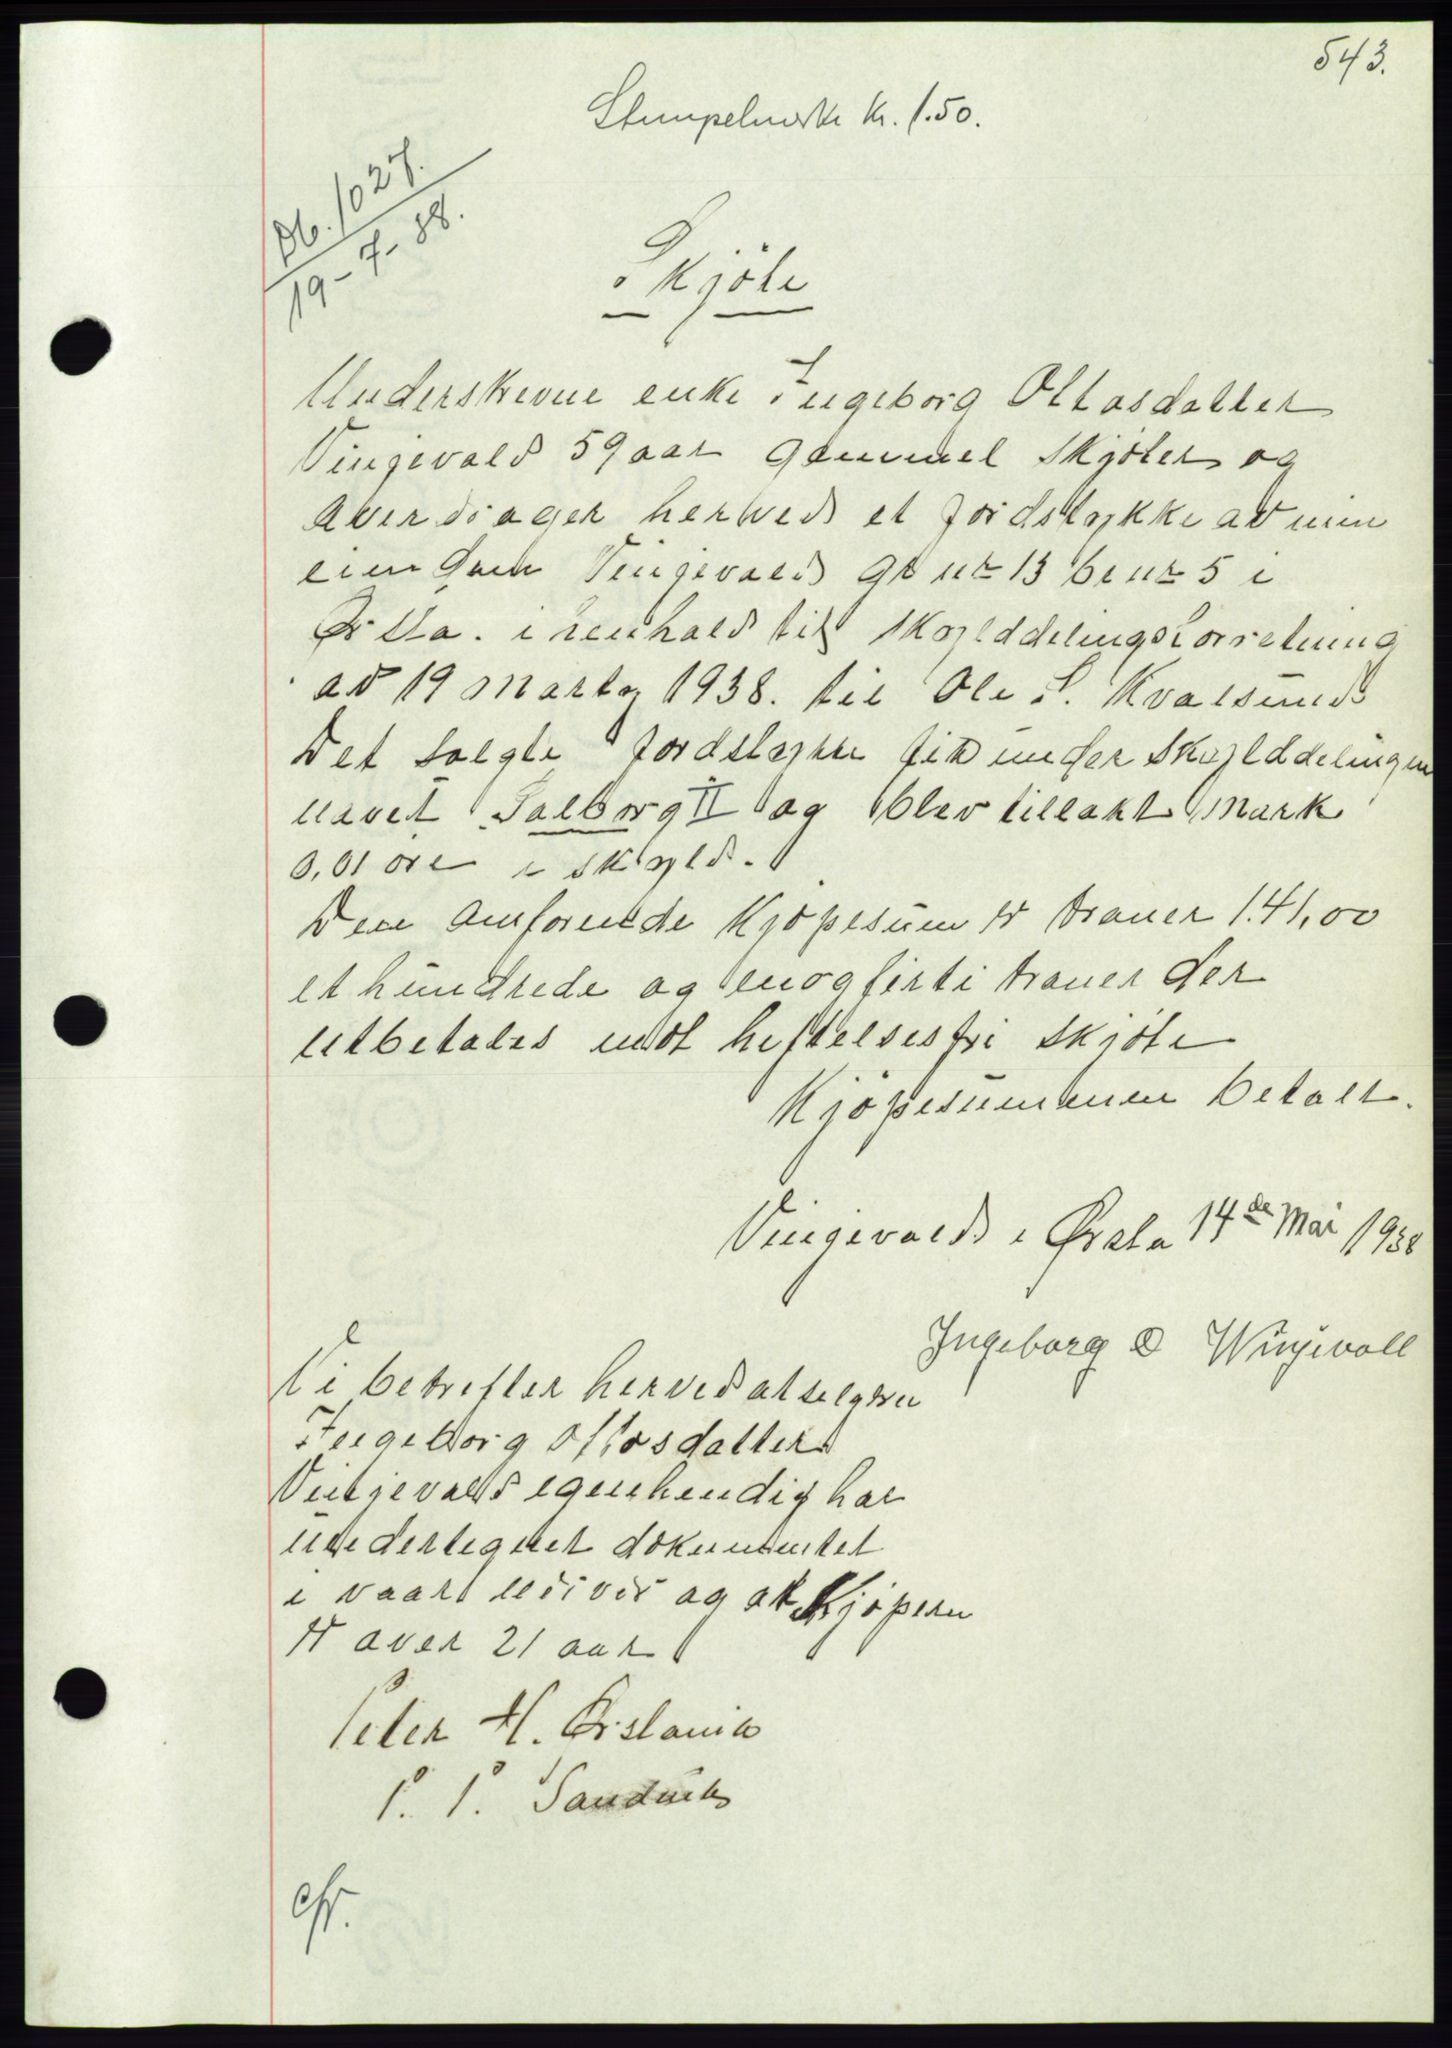 543.
Stempelmerke kr. 1.50.
Db. 1027.
19-7-38.
Skjöte
Underskrevne enke Ingeborg Ottosdatter
Vingevold 59 aar gammel skjöter og
averdrager herved et jordstykke av min
eiendom Vingevold gr nr 13 br nr 5 i
Örsta. i henhold til skylddelingsforretning
av 19 marts 1938. til Ole S. Kvalsund
Det solgte jordstykke fik under skylddelingen
navet Solborg II og blev tillakt mark
0,01 öre i skyld.
Den omforende kjöpesum er kroner 1.41,00
et hundrede og enogfirti kroner der
utbetales mot heftelsesfri skjöte
Kjöpesummen betalt.
Vingevold i Örsta 14de Mai 1938
Ingeborg O Wingevoll
Vi betrefter herved at selgeren
Ingeborg Ottosdatter
Vingevold egenhendig har
undertegnet dokumentet
i vaart nærvær og at Kjöperen
er over 21 aar
Peter H. Örstavik
P. P. Sandvik